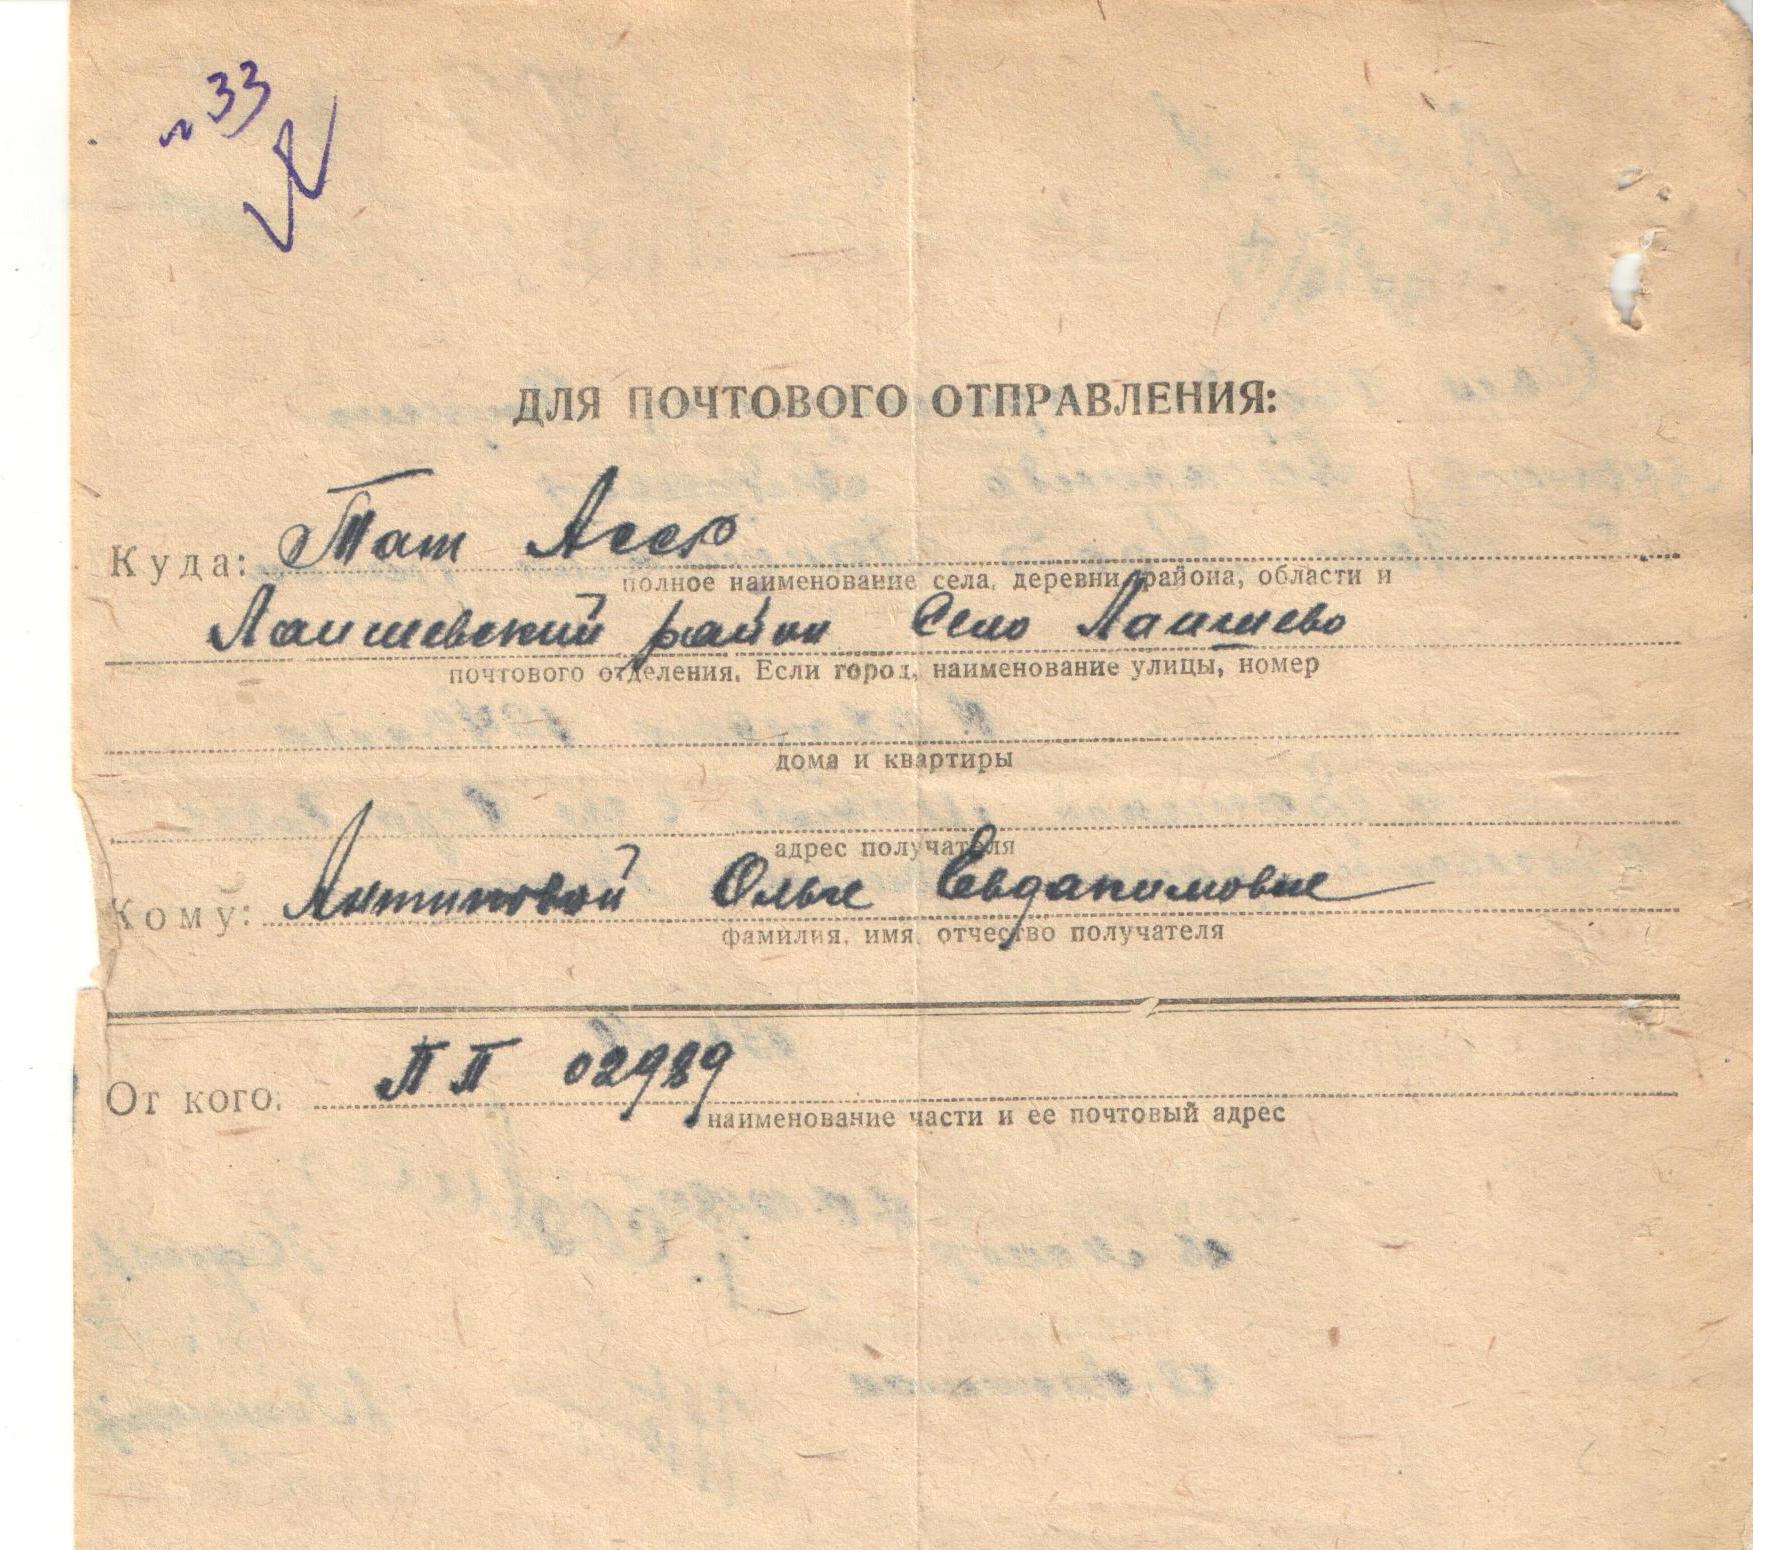 № 33
ДЛЯ ПОЧТОВОГО ОТПРАВЛЕНИЯ:
Куда: Тат Асср
полное наименование села, деревни, района, области и
Лаишевский район Село Лаишево
почтового отделения. Если город, наименование улицы, номер
дома и квартиры
адрес получателя
Кому: Антиповой Ольге Евдакимовне
фамилия, имя, отчество получателя
От кого: ПП 02989
наименование части и ее почтовый адрес